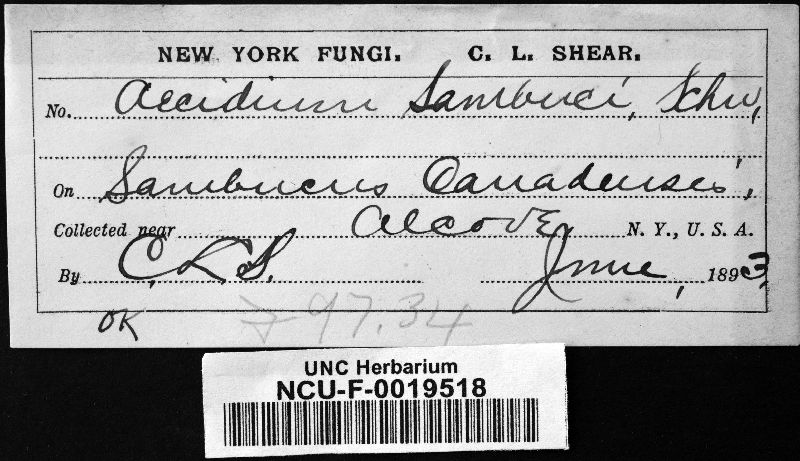 NEW YORK FUNGI. C. L. SHEAR.
No. Aecidium Sambuci, Schw,
On Sambucus Canadensis,
Collected near Alcove N. Y., U. S. A.
By C. L. S. June, 1893,
OK 97.34
UNC Herbarium
NCU-F-0019518